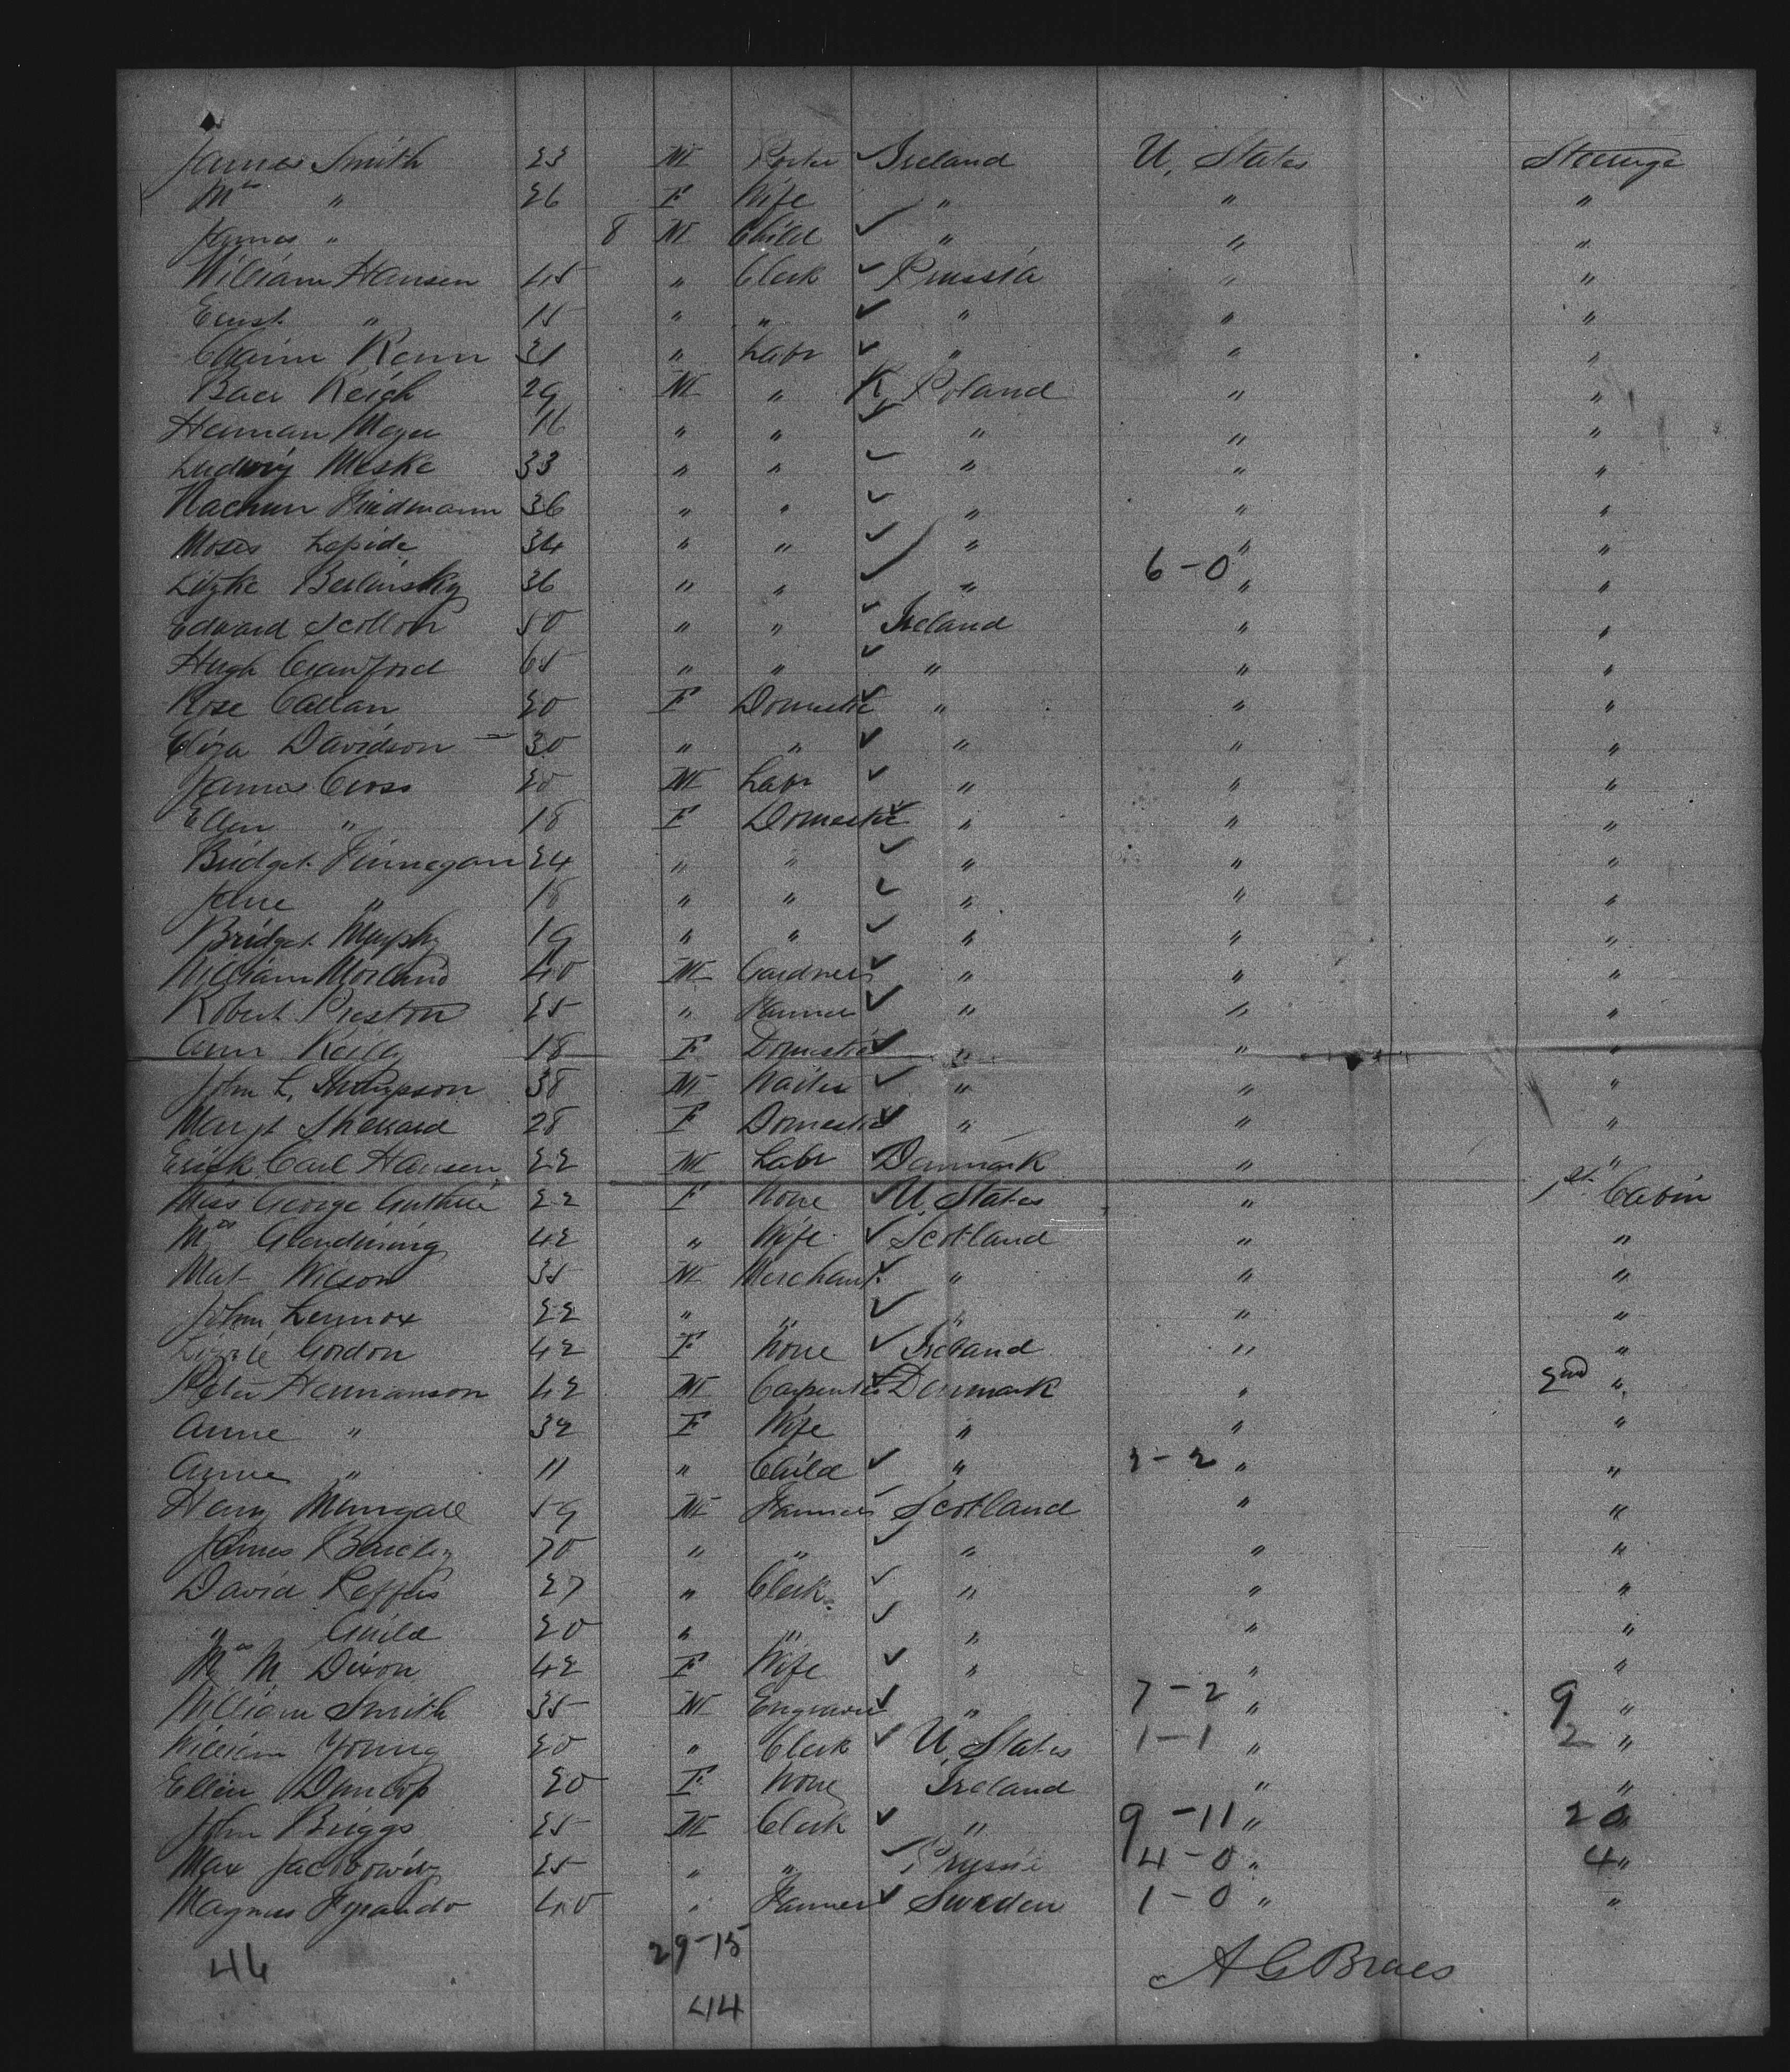 James Smith 23 M Porter Ireland U. States Steerage
Mrs " 26 F Wife " " "
James " 8 M Child " " "
William Hansen 45 " Clerk Prussia " "
Ernst " 15 " " " " "
Chaim Renn 31 " Labr " " "
Baer Reich 29 M " R Poland " "
Herman Meyer 16 " " " " "
Ludwig Meske 33 " " " " "
Nachum Friedmann 36 " " " " "
Moses Lapide 34 " " " " "
Litzke Berlinsky 36 " " " 6-0 " "
Edward Scollon 50 " " Ireland " "
Hugh Crawford 65 " " " " "
Rose Callan 20 F Domestic " " "
Eliza Davidson 30 " " " " "
James Cross 20 M Labr " " "
Ellen " 18 F Domestic " " "
Bridget Finnegan 24 " " " " "
Jane " 18 " " " " "
Bridget Murphy 19 " " " " "
William Morland 40 M Gardner " " "
Robert Preston 25 " Farmer " " "
Ann Reilly 18 F Domestic " " "
John L. Thompson 38 M Waiter " " "
Margt Sherrard 28 F Domestic " " "
Erick Carl Hansen 22 M Labr Danmark " "
Miss George Guthrie 22 F None U. States " 1st Cabin
Mrs Glendining 42 " Wife Scotland " "
Mat Wilson 35 M Merchant " " "
John Lennox 22 " " " " "
Lizzie Gordon 42 F None Ireland " "
Peter Hermanson 42 M Carpenter Denmark " 2nd "
Anne " 32 F Wife " " "
Anne " 11 " Child " 2-2 " "
Henry Mungall 59 M Farmer Scotland " "
James Barclay 70 " " " " "
David Peffers 27 " Clerk " " "
" Guild 20 " " " " "
Mrs M. Dixon 42 F Wife " " "
William Smith 35 M Engraver " 7-2 " 9 "
William Young 20 " Clerk U. States 1-1 " 2 "
Ellen Dunlop 20 F None Ireland " "
John Briggs 25 M Clerk " 9-11 " 20 "
Max Jacobowitz 25 " " Prussia 4-0 " 4 "
Magnus 40 " Farmer Sweden 1-0 " "
46 29-15 A G Braes
44